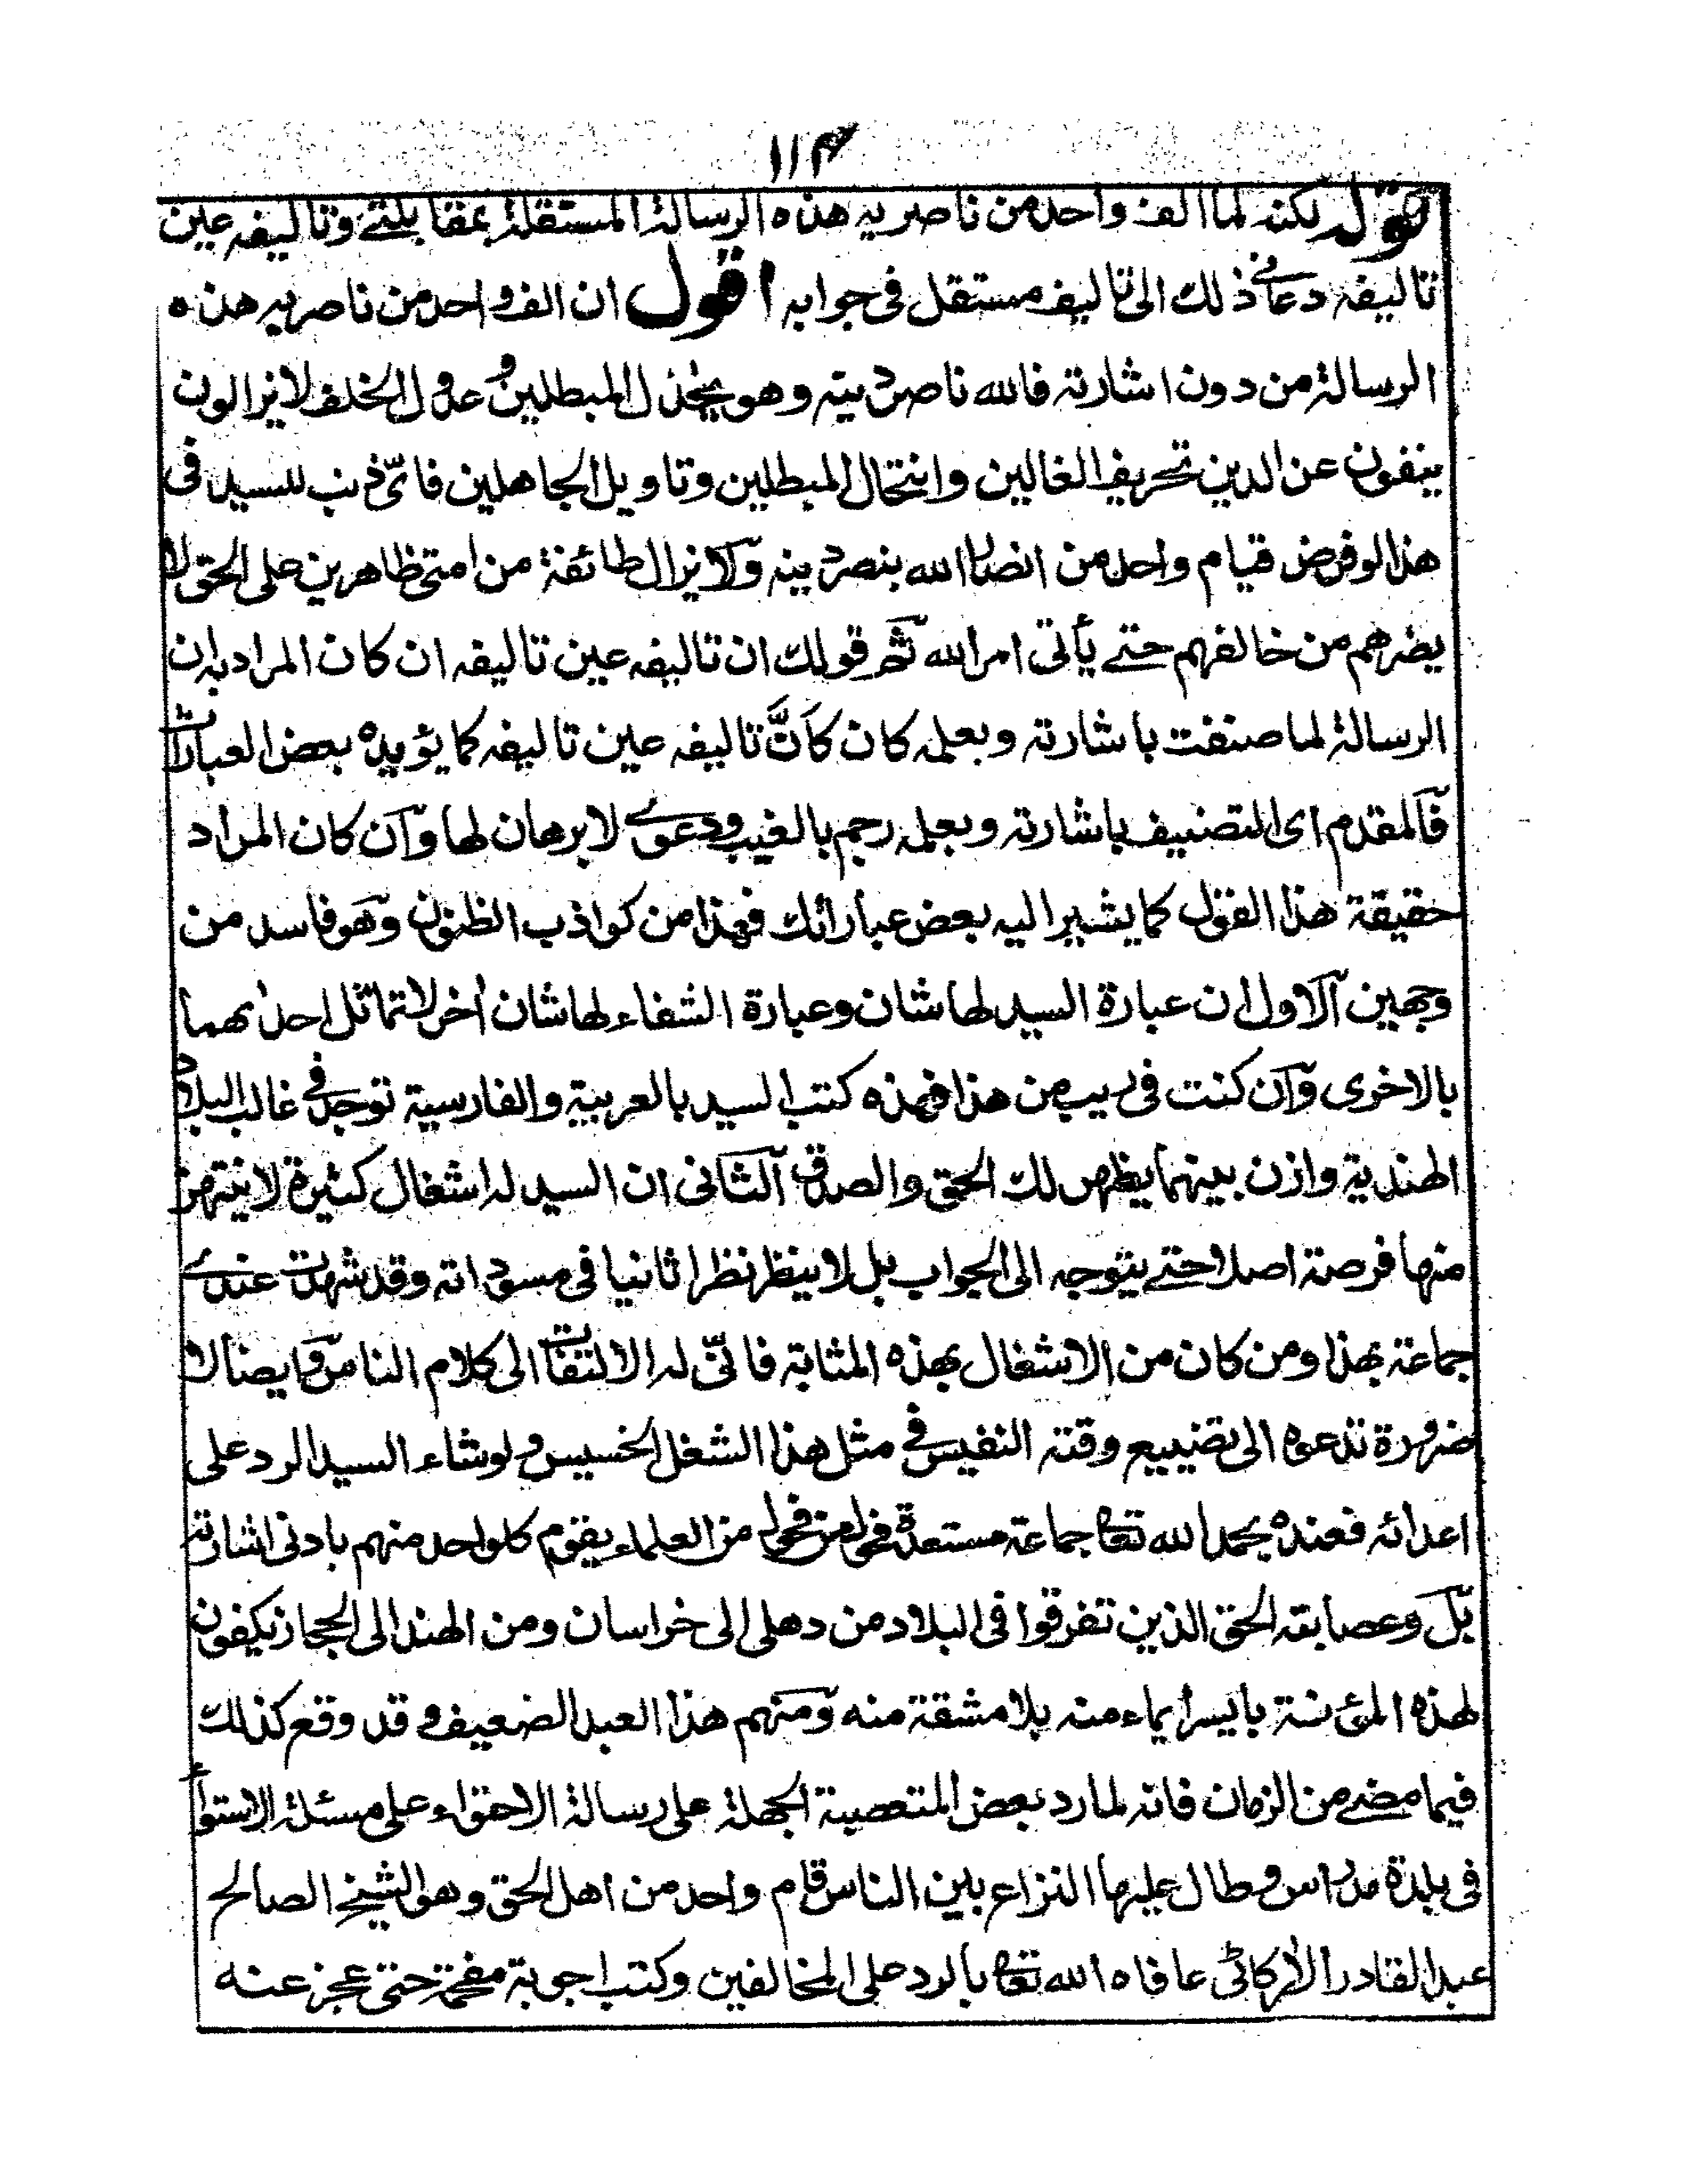 ١١٤
قوله لكنه لما الف واحد من ناصريه هذه الرسالة المستقلة بمقابلتي وتاليفه عين
تاليفه دعاني ذلك الى تاليف مستقل في جوابه اقول ان الف واحد من ناصريه هذه
الرسالة من دون اشارته فالله ناصر دينه وهو يخذل المبطلين وعدول الخلف لا يزالون
ينفون عن الدين تحريف الغالين وانتحال المبطلين وتاويل الجاهلين فاىّ ذنب للسيد فى
هذا لو فرض قيام واحد من انصار الله بنصر دينه ولا يزال طائفة من امتى ظاهرين على الحق لا
يضرهم من خالفهم حتے يأتى امر الله ثم قولك ان تاليفه عين تاليفه ان كان المراد به ان
الرسالة لما صنفت باشارته وبعلمه كان كَأَنَّ تاليفه عين تاليفه كما يؤيده بعض العبارات
فالمقدم اى التصنيف باشارته وبعلمه رجم بالغيب ودعوے لا برهان لها وان كان المراد
حقيقة هذا القول كما يشير اليه بعض عباراتك فهذا من كواذب الظنون وهو فاسد من
وجهين الاول ان عبارة السيد لها شان وعبارة الشفاء لها شان اخر لا تماثل احدٰهما
بالاخرى وان كنت فى ريب من هذا فهذه كتب السيد بالعربية والفارسية توجد فے غالب البلاد
الهندية وازن بينهما يظهر لك الحق والصدق الثانى ان السيد له اشغال كثيرة لا ينتهز
منها فرصة اصلا حتے يتوجه الى الجواب بل لا ينظر نظرا ثانيا فى مسوداته وقد شهدت عندے
جماعة بهذا ومن كان من الاشغال بهذه المثابة فانّى له الالتفات الى كلام الناس وايضا لا
ضرورة تدعوه الى تضييع وقته النفيس فے مثل هذا الشغل الخسيس ولو شاء السيد الرد على
اعدائه فعنده بحمد الله تعا جماعة مستعدة فحل من فحول من العلماء يقوم كل واحد منهم بادنى اشارته
بل وعصابته الحق الذين تفرقوا فى البلاد من دهلى الى خراسان ومن الهند الى الحجاز يكفون
لهذه المؤنة بايسر ايماء منه بلا مشقة منه ومنهم هذا العبد الضعيف وقد وقع كذلك
فيما مضے من الزمان فانه لما رد بعض المتعصبة الجهلة على رسالة الاحتواء على مسئلة الاستواء
فى بلدة مدراس وطال عليها النزاع بين الناس قام واحد من اهل الحق وهو الشيخ الصالح
عبد القادر الاركاٹى عافاه الله تعا بالرد على المخالفين وكتب اجوبة مفحمة حتى عجز عنه